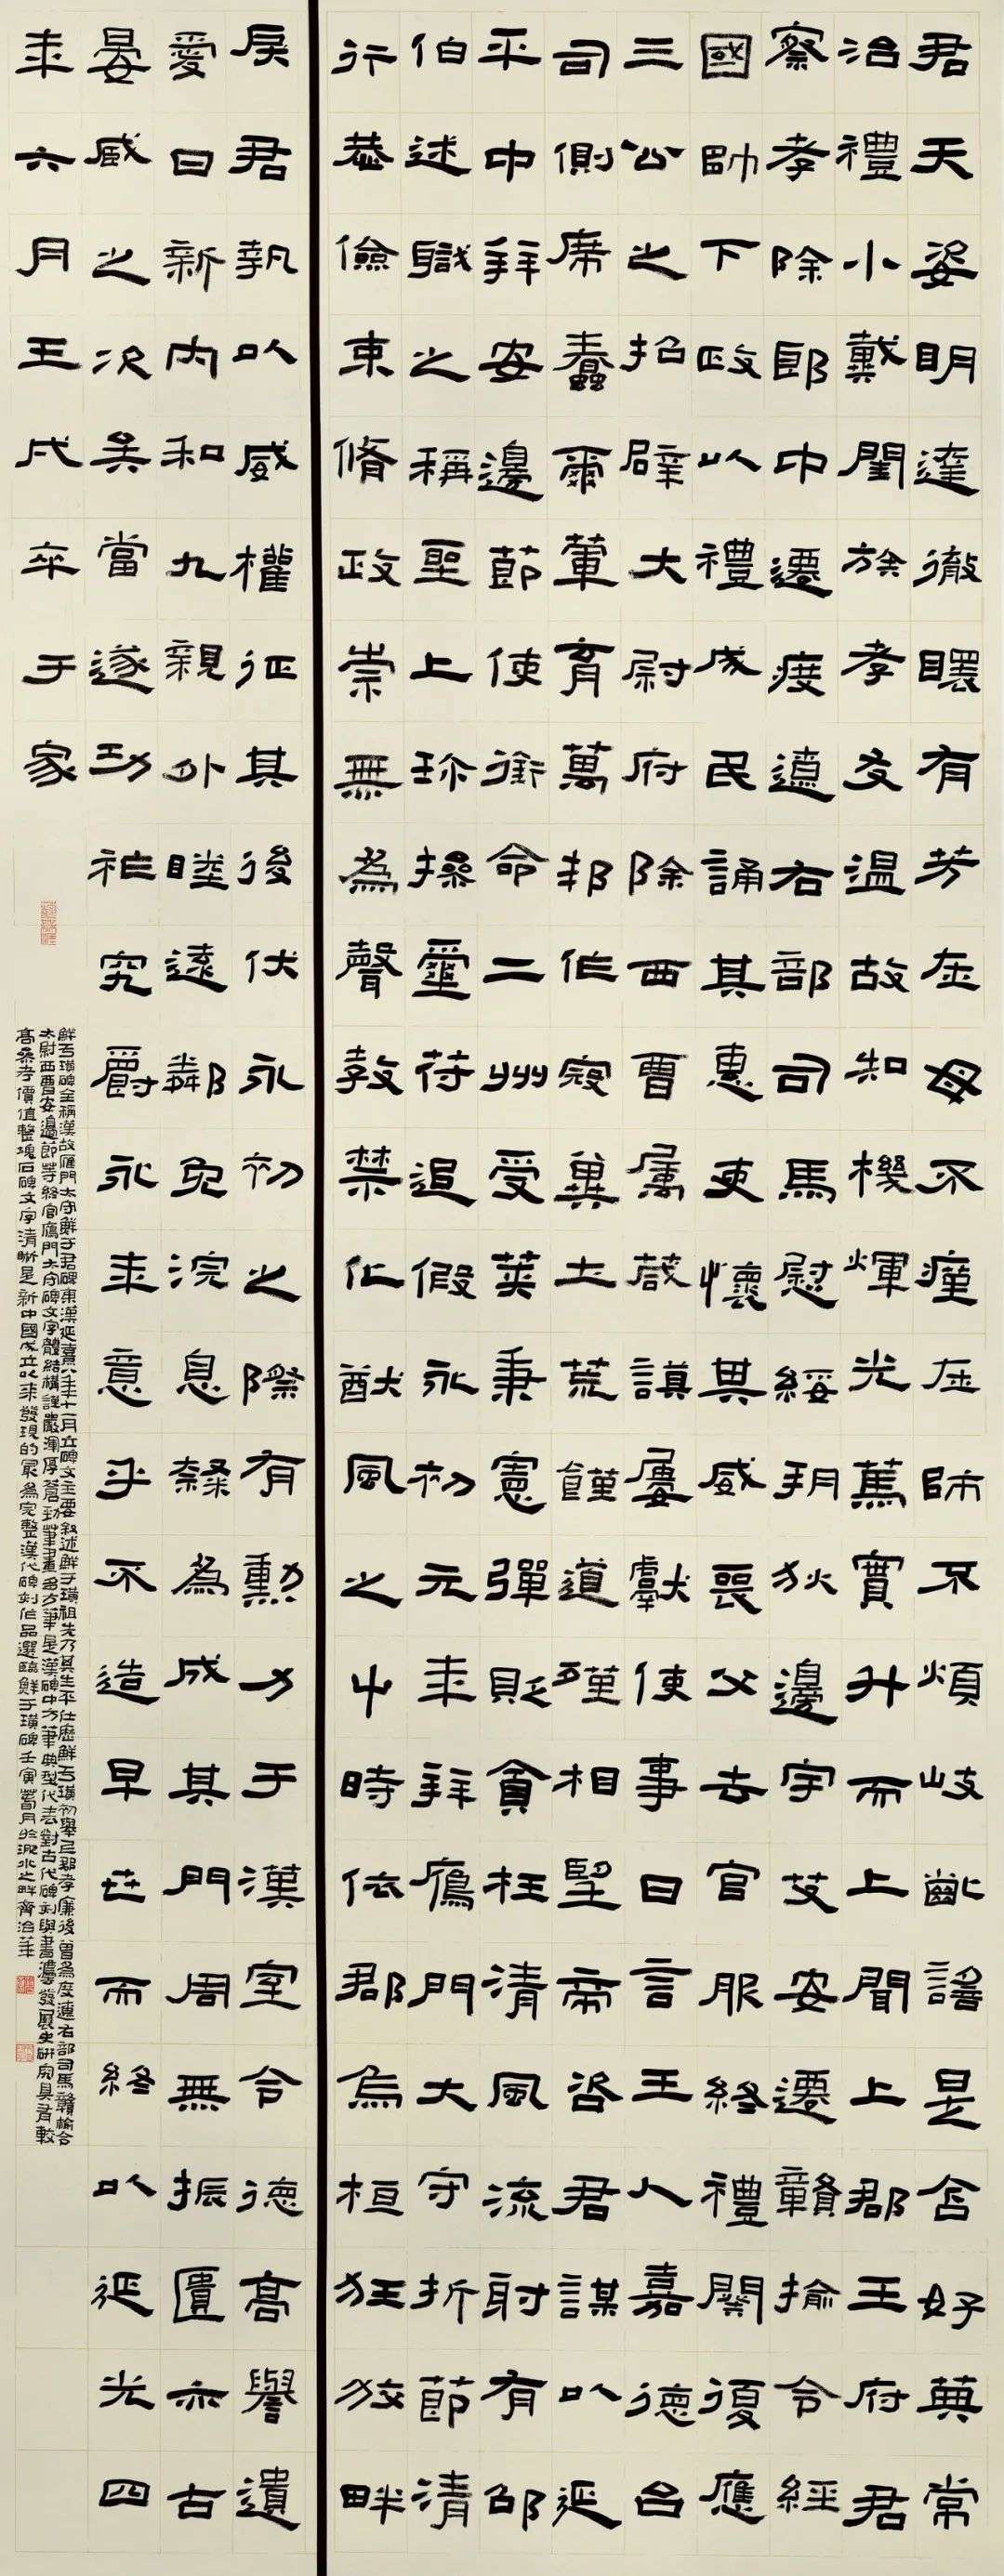 君天姿明達徹瞏有芳在母不瘽在師不煩岐齔謠是含好典常
治禮小戴閨族孝友溫故知機煇光篤實升而上聞上郡王府君
察孝除郎中遷度遼右部司馬慰綏朔狄邊宇艾安遷贛揄令經
國帥下政以禮成民誦其惠吏懷其威喪父去官服終禮闋復應
三公之招辟大尉府除西曹屬葴謨屢獻使事日言王人嘉德台
司側席蠢爾葷育萬邦作寇冀土荒饉道殣相望帝咨君謀以延
平中拜安邊節使銜命二州受莢秉憲彈貶貪枉清風流射有邵
伯述職之稱聖上珍操璽符追假永初元年拜鴈門大守折節清
行恭儉束脩政崇無為聲教禁化猷風之中時依郡烏桓狂狡畔
戾君執以威權征其後伏永初之際有勳力于漢室令德高譽遺
愛日新內和九親外睦遠鄰免浣息隸為成其門周無振匱亦古
晏臧之次矣當遂功祚究爵永年意乎不造早世而終以延光四
年六月壬戌卒于家
鮮于璜碑全稱漢故雁門太守鮮于君碑東漢延熹八年十一月立碑文主要叙述鮮于璜祖先乃其生平仕歷鮮于璜初舉巴郡孝廉後曾為度遼右部司馬贛榆令
太尉西曹安邊節等終官鴈門太守碑文字體結構謹嚴渾厚蒼勁筆畫多方筆是漢碑中方筆典型代表對古代碑刻與書法發展史研究具有較
高參考價值整塊石碑文字清晰是新中國成立以來發現的最為完整漢代碑刻作品選臨鮮于璜碑壬寅月於淝水之畔齊治華